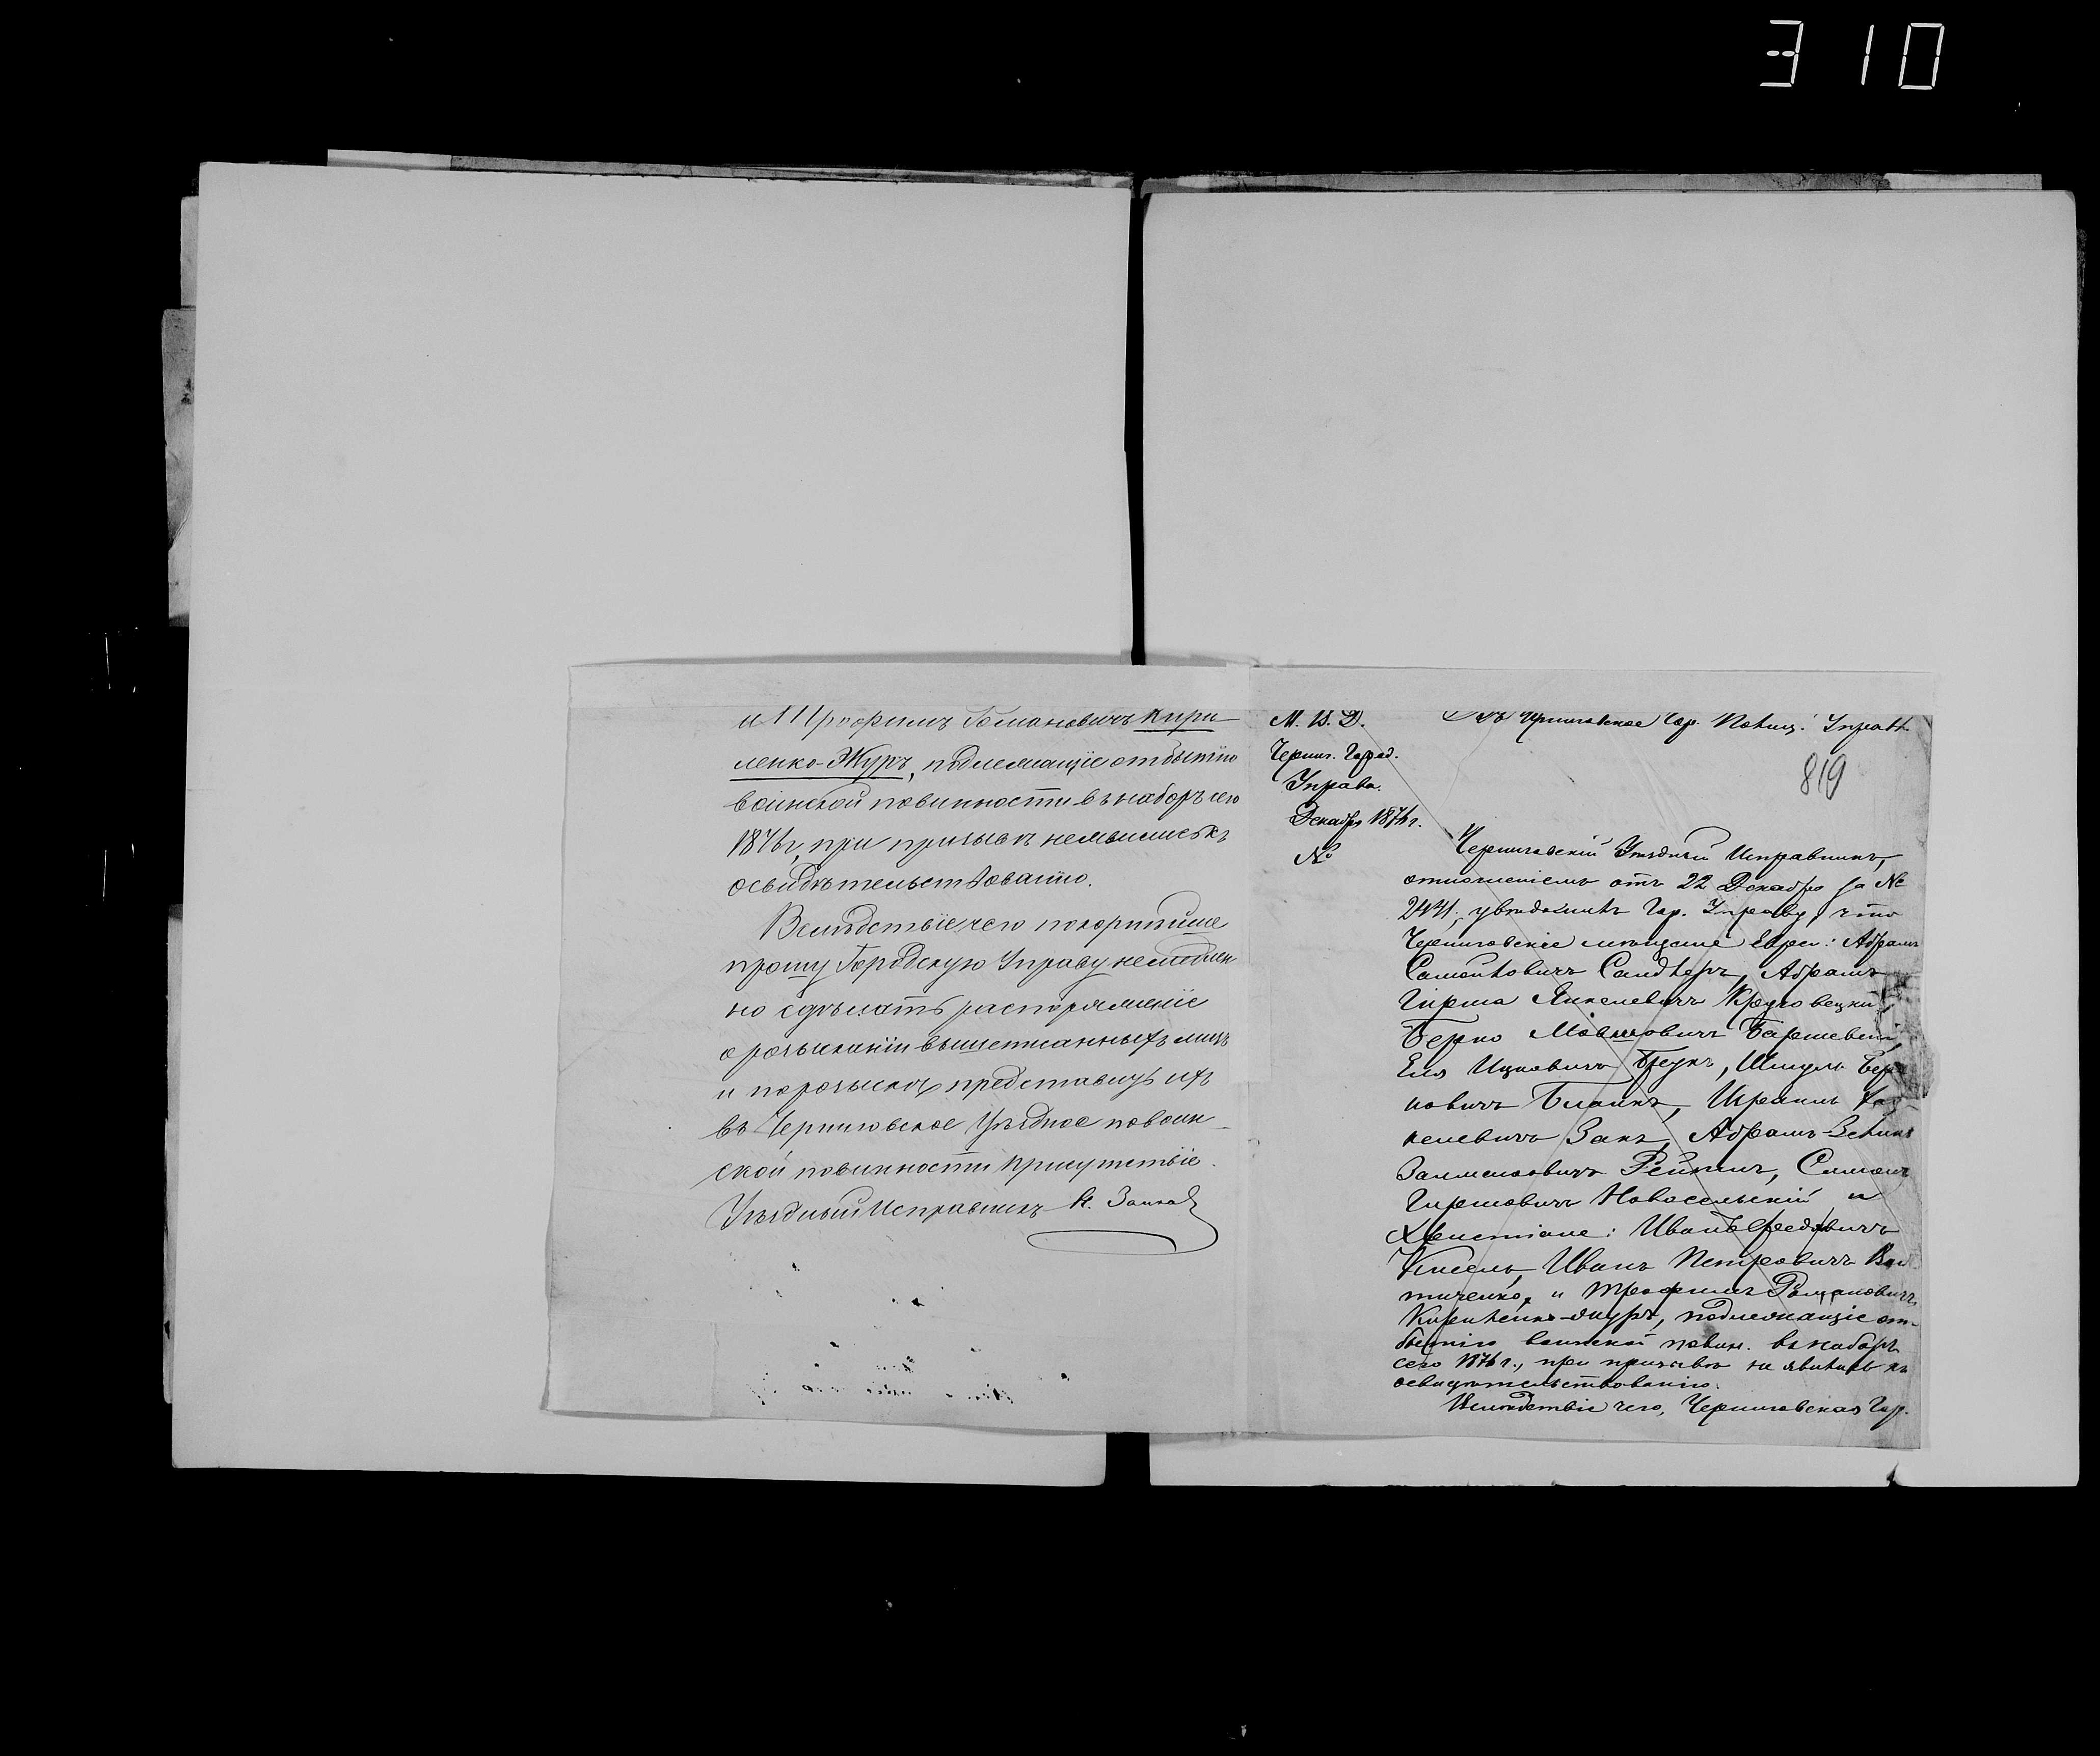 310
и Трофимъ Романовичъ Кири-
ленко-Журъ, подлежащіе отбытію
воинской повинности въ наборъ сего
1876 г, при призывѣ неявились къ
освидѣтельствованію.
Вслѣдствіе чего покорнѣйше
прошу Городскую Управу немедлен
но сдѣлать распоряженіе
о розысканіи вышеписанныхъ лицъ
и по розыскѣ представить ихъ
въ Черниговское Уѣздное по воин-
ской повинности присутствіе.
Уѣздный Исправникъ
М. В. Д.
Чернг. Город.
Управа.
Декабря 1876 г.
№
Въ Черниговское Гор. Полиц. Управл.
819
Черниговскій Уѣздный Исправникъ,
отношеніемъ отъ 22 Декабря за №
увѣдомилъ Гор. Управу, что
Черниговскіе мѣщане Евреи: Абрамъ
Самойловичъ Сандлеръ, Абрамъ
Гирша Янкелевичъ
Берко Мовшовичъ
Еля Ицковичъ Брукъ, Шмуль Бер
ковичъ Бланкъ, Израиль
келевичъ Закъ, Абрамъ-Зеликъ
Залмановичъ Рейкинъ, Симонъ
Гиршовичъ Новосельскій и
Христіане: Иванъ Федоровичъ
Кисель, Иванъ Петровичъ
тиченко, и Трофимъ Романовичъ
Кириленко-Журъ, подлежащіе от-
бытію воинской повин. въ наборъ
сего 1876 г., при призывѣ не явились къ
освидѣтельствованію.
Вслѣдствіе чего, Черниговская Гор.